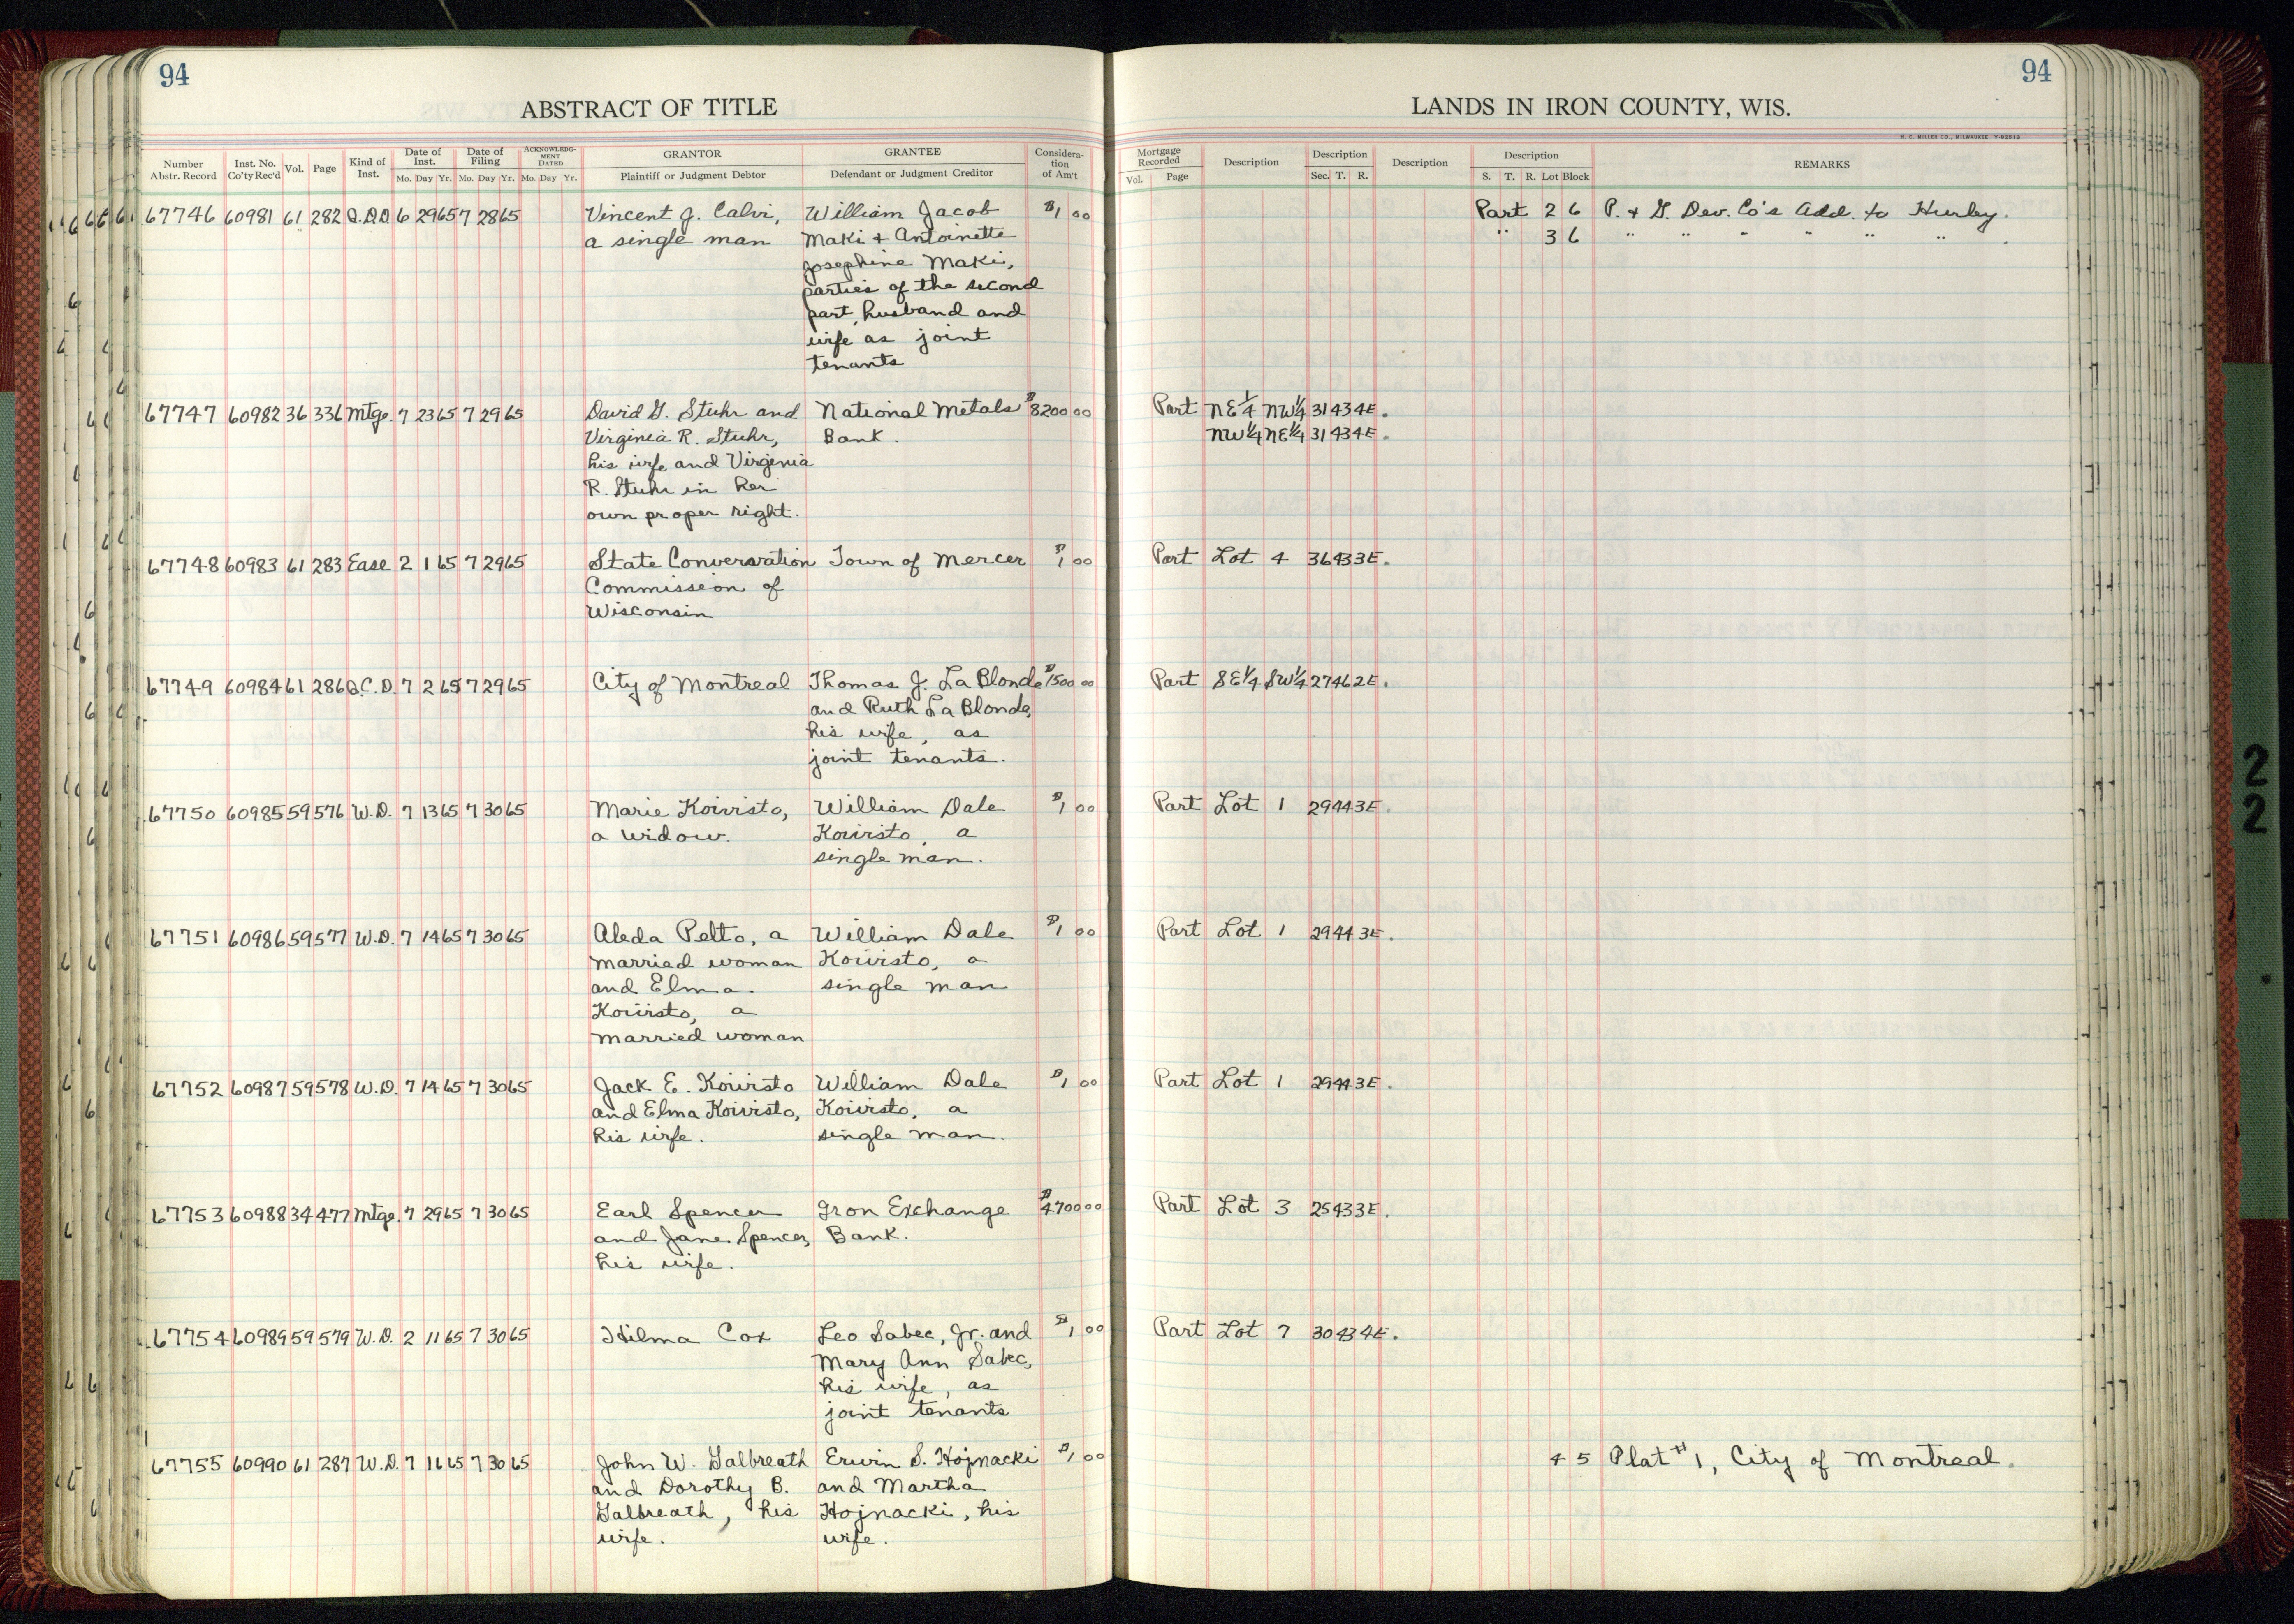 94
ABSTRACT OF TITLE
Number Abstr. Record Inst. No. Co'ty Rec'd Vol. Page Kind of Inst. Date of Inst. Mo. Day Yr. Date of Filing Mo. Day Yr. ACKNOWLEDGMENT DATED Mo. Day Yr. GRANTOR Plaintiff or Judgment Debtor GRANTEE Defendant or Judgment Creditor Consideration of Am't
67746 60981 61 282 6 29 65 7 28 65 Vincent J. Calvi, William Jacob $1 00
a single man Maki + Antoinette
Josephine Maki,
parties of the second
part, husband and
wife as joint
tenants
67747 60982 36 336 Mtge. 7 23 65 7 29 65 David G. Stuhr and National Metals $8200 00
Virginia R. Stuhr, Bank.
his wife and Virginia
R. Stuhr in her
own proper right.
67748 60983 61 283 Ease 2 1 65 7 29 65 State Conversvation Town of Mercer $1 00
Commission of
Wisconsin
67749 60984 61 286 Q.C.D. 7 2 65 7 29 65 City of Montreal Thomas J. La Blonde $1500 00
and Ruth La Blonde,
his wife, as
joint tenants.
67750 60985 59 576 W.D. 7 13 65 7 30 65 Marie Koivisto, William Dale $1 00
a widow. Koivisto, a
single man.
67751 60986 59 577 W.D. 7 14 65 7 30 65 Aleda Pelto, a William Dale $1 00
married woman Koivisto, a
and Elma single man
Koivisto, a
married woman
67752 60987 59 578 W.D. 7 14 65 7 30 65 Jack E. Koivisto William Dale $1 00
and Elma Koivisto, Koivisto, a
his wife. single man.
67753 60988 34 477 Mtge. 7 29 65 7 30 65 Earl Spencer Iron Exchange $4700 00
and Jane Spencer, Bank.
his wife.
67754 60989 59 579 W.D. 2 11 65 7 30 65 Hilma Cox Leo Sabec, Jr. and $1 00
Mary Ann Sabec,
his wife, as
joint tenants
67755 60990 61 287 W.D. 7 16 65 7 30 65 John W. Galbreath Erwin S. Hojnacki $1 00
and Dorothy B. and Martha
Galbreath, his Hojnacki, his
wife. wife.
94
LANDS IN IRON COUNTY, WIS.
H. C. MILLER CO., MILWAUKEE
Mortgage Recorded Vol. Page Description Description Sec. T. R. Description Description S. T. R. Lot Block REMARKS
Part 2 6 P. + G. Dev. Co's Add. to Hurley.
" 3 6 " " " " " " .
Part NE¼ NW¼ 31 43 4E.
NW¼ NE¼ 31 43 4E.
Part Lot 4 36 43 3E.
Part SE¼ SW¼ 27 46 2E.
Part Lot 1 29 44 3E.
Part Lot 1 29 44 3E.
Part Lot 1 29 44 3E.
Part Lot 3 25 43 3E.
Part Lot 7 30 43 4E.
4 5 Plat #1, City of Montreal.
22